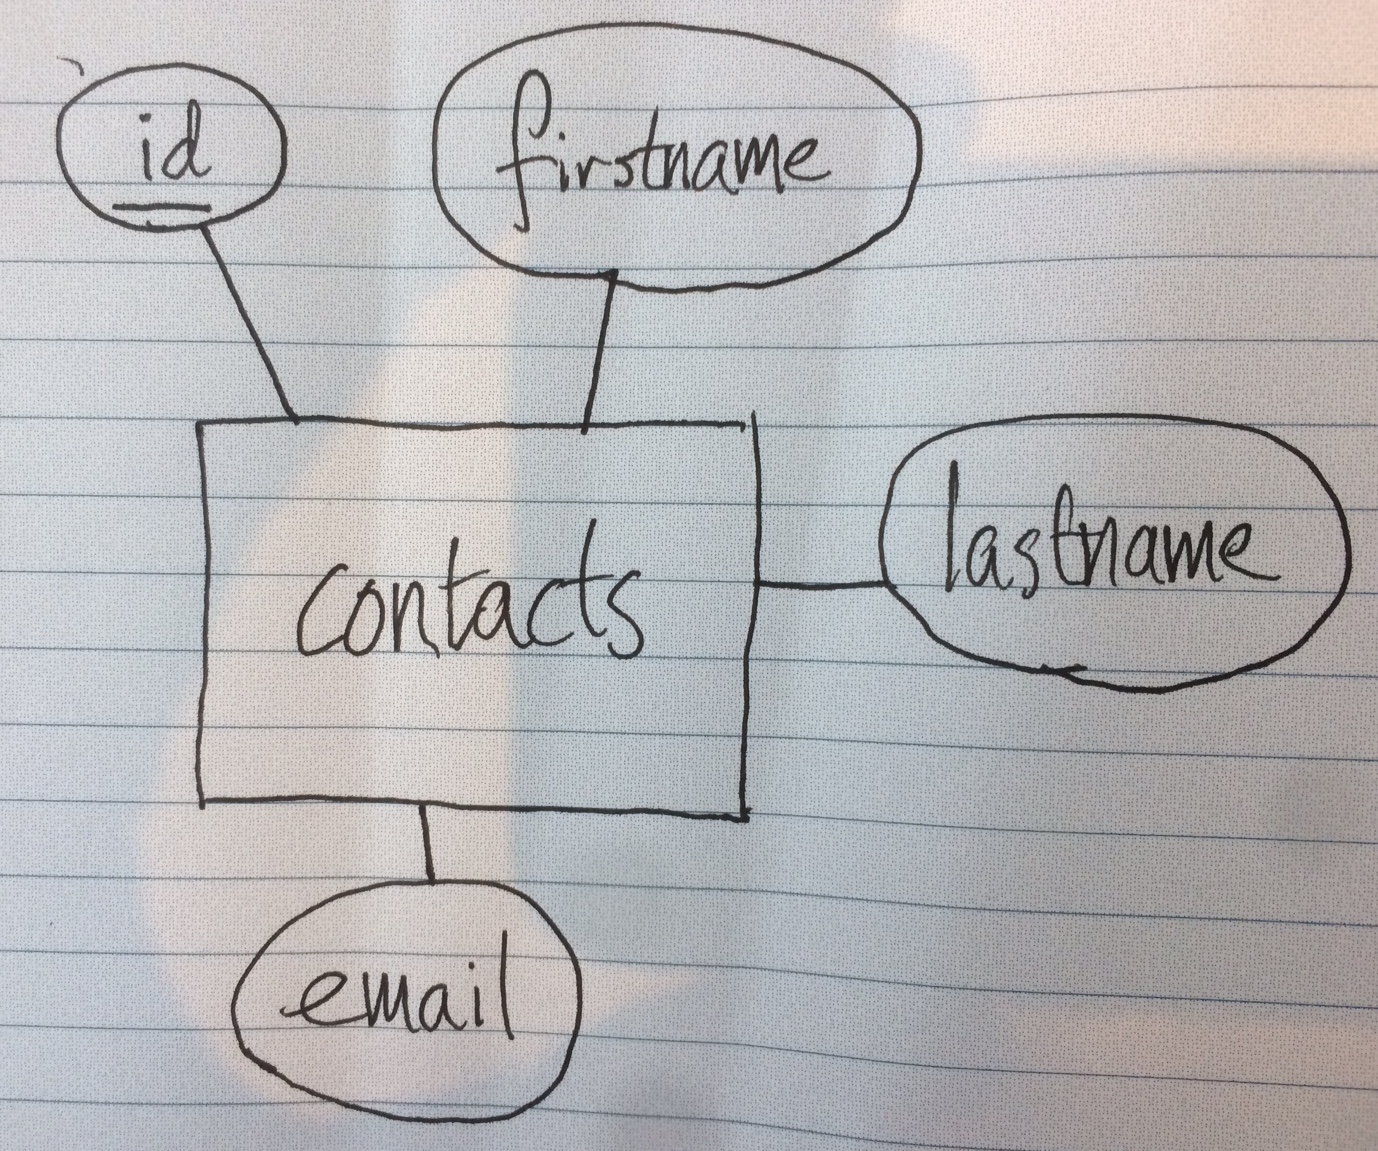 id
firstname
contacts
lastname
email